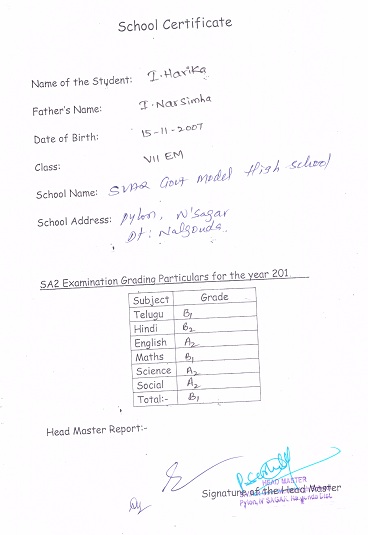 School Certificate
Name of the Student: I. Harika
Father's Name: I. Narsimha
Date of Birth: 15-11-2007
Class: VII EM
School Name: Govt Model High school
School Address: Pylon, N'sagar
Dt: Nalgonda.
SA2 Examination Grading Particulars for the year 201
Subject Grade
Telugu B1
Hindi B2
English A2
Maths B1
Science A2
Social A2
Total:- B1
Head Master Report:-
HEAD MASTER
Signature of The Head Master
Pylon, N'SAGAR, Nalgonda Dist.